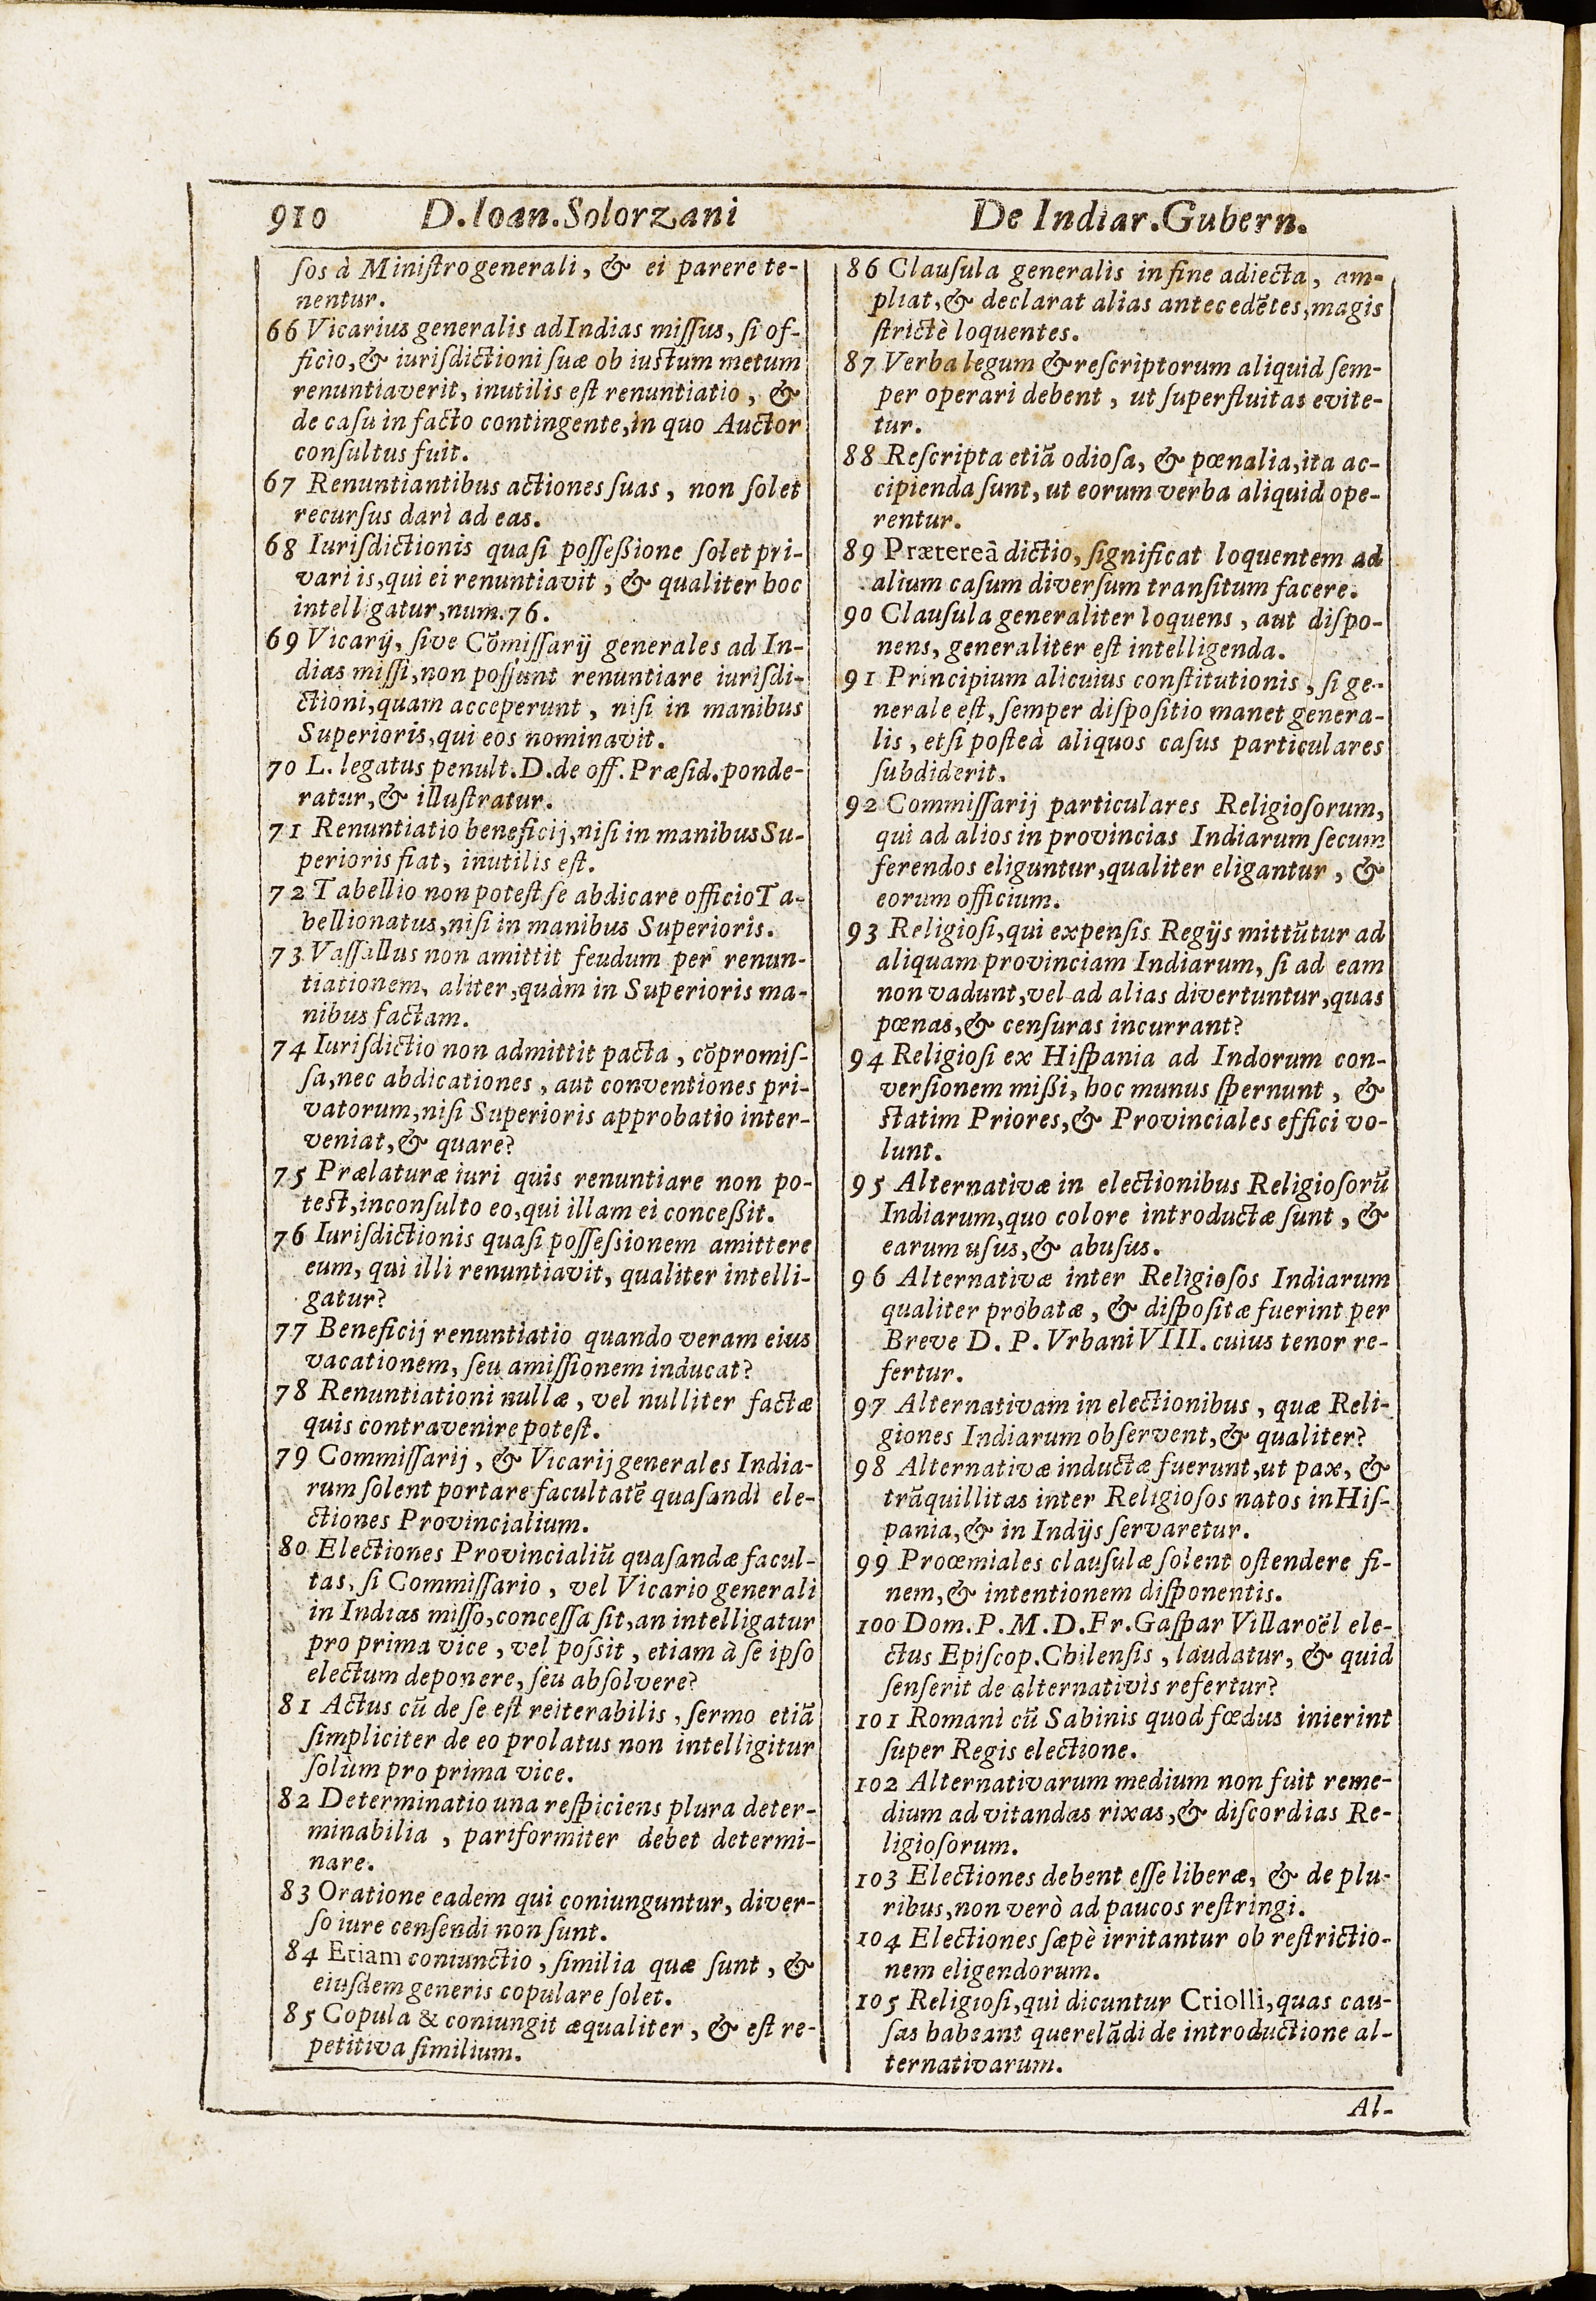 910 D. Ioan. Solorzani De Indiar. Gubern.
ſos à Miniſtro generali, & ei parere te-
nentur.
66 Vicarius generalis ad Indias miſſus, ſi of-
ficio, & iuriſdictioni ſuæ ob iustum metum
renuntiaverit, inutilis eſt renuntiatio, &
de caſu in facto contingente, in quo Auctor
conſultus fuit.
67 Renuntiantibus actiones ſuas, non ſolet
recurſus dari ad eas.
68 Iuriſdictionis quaſi poſſeßione ſolet pri-
vari is, qui ei renuntiavit, & qualiter hoc
intelligatur, num. 76.
69 Vicarij, ſive Cõmiſſarij generales ad In-
dias miſſi, non poſſunt renuntiare iuriſdi-
ctioni, quam acceperunt, niſi in manibus
Superioris, qui eos nominavit.
70 L. legatus penult. D. de off. Præſid. ponde-
ratur, & illuſtratur.
71 Renuntiatio beneficij, niſi in manibus Su-
perioris fiat, inutilis eſt.
72 Tabellio non poteſt ſe abdicare officio Ta-
bellionatus, niſi in manibus Superioris.
73 Vaſſallus non amittit feudum per renun-
tiationem, aliter, quàm in Superioris ma-
nibus factam.
74 Iuriſdictio non admittit pacta, cõpromiſ-
ſa, nec abdicationes, aut conventiones pri-
vatorum, niſi Superioris approbatio inter-
veniat, & quare?
75 Prælaturæ iuri quis renuntiare non po-
test, inconſulto eo, qui illam ei conceßit.
76 Iuriſdictionis quaſi poſſeſsionem amittere
eum, qui illi renuntiavit, qualiter intelli-
gatur?
77 Beneficij renuntiatio quando veram eius
vacationem, ſeu amiſſionem inducat?
78 Renuntiationi nullæ, vel nulliter factæ
quis contravenire poteſt.
79 Commiſſarij, & Vicarij generales India-
rum ſolent portare facultatẽ quaſandi ele-
ctiones Provincialium.
80 Electiones Provincialiũ quaſandæ facul-
tas, ſi Commiſſario, vel Vicario generali
in Indias miſſo, conceſſa ſit, an intelligatur
pro prima vice, vel poſsit, etiam à ſe ipſo
electum deponere, ſeu abſolvere?
81 Actus cũ de ſe eſt reiterabilis, ſermo etiã
ſimpliciter de eo prolatus non intelligitur
ſolùm pro prima vice.
82 Determinatio una reſpiciens plura deter-
minabilia, pariformiter debet determi-
nare.
83 Oratione eadem qui coniunguntur, diver-
ſo iure cenſendi non ſunt.
84 Etiam coniunctio, ſimilia quæ ſunt, &
eiuſdem generis copulare ſolet.
85 Copula & coniungit æqualiter, & eſt re-
petitiva ſimilium.
86 Clauſula generalis in fine adiecta, am-
pliat, & declarat alias antecedẽtes, magis
ſtrictè loquentes.
87 Verba legum & reſcriptorum aliquid ſem-
per operari debent, ut ſuperfluitas evite-
tur.
88 Reſcripta etiã odioſa, & pœnalia, ita ac-
cipienda ſunt, ut eorum verba aliquid ope-
rentur.
89 Prætereâ dictio, ſignificat loquentem ad
alium caſum diverſum tranſitum facere.
90 Clauſula generaliter loquens, aut diſpo-
nens, generaliter eſt intelligenda.
91 Principium alicuius conſtitutionis, ſi ge-
nerale eſt, ſemper diſpoſitio manet genera-
lis, etſi poſteà aliquos caſus particulares
ſubdiderit.
92 Commiſſarij particulares Religioſorum,
qui ad alios in provincias Indiarum ſecum
ferendos eliguntur, qualiter eligantur, &
eorum officium.
93 Religioſi, qui expenſis Regijs mittũtur ad
aliquam provinciam Indiarum, ſi ad eam
non vadunt, vel ad alias divertuntur, quas
pœnas, & cenſuras incurrant?
94 Religioſi ex Hiſpania ad Indorum con-
verſionem mißi, hoc munus ſpernunt, &
statim Priores, & Provinciales effici vo-
lunt.
95 Alternativæ in electionibus Religioſorũ
Indiarum, quo colore introductæ ſunt, &
earum uſus, & abuſus.
96 Alternativæ inter Religioſos Indiarum
qualiter probatæ, & diſpoſitæ fuerint per
Breve D. P. Vrbani VIII. cuius tenor re-
fertur.
97 Alternativam in electionibus, quæ Reli-
giones Indiarum obſervent, & qualiter?
98 Alternativæ inductæ fuerunt, ut pax, &
trãquillitas inter Religioſos natos in Hiſ-
pania, & in Indijs ſervaretur.
99 Proœmiales clauſulæ ſolent oſtendere fi-
nem, & intentionem diſponentis.
100 Dom. P. M. D. Fr. Gaſpar Villaroël ele-
ctus Epiſcop. Chilenſis, laudatur, & quid
ſenſerit de alternativis refertur?
101 Romani cũ Sabinis quod fœdus inierint
ſuper Regis electione.
102 Alternativarum medium non fuit reme-
dium ad vitandas rixas, & diſcordias Re-
ligioſorum.
103 Electiones debent eſſe liberæ, & de plu-
ribus, non verò ad paucos reſtringi.
104 Electiones ſæpè irritantur ob reſtrictio-
nem eligendorum.
105 Religioſi, qui dicuntur Criolli, quas cau-
ſas habeant querelãdi de introductione al-
ternativarum.
Al-